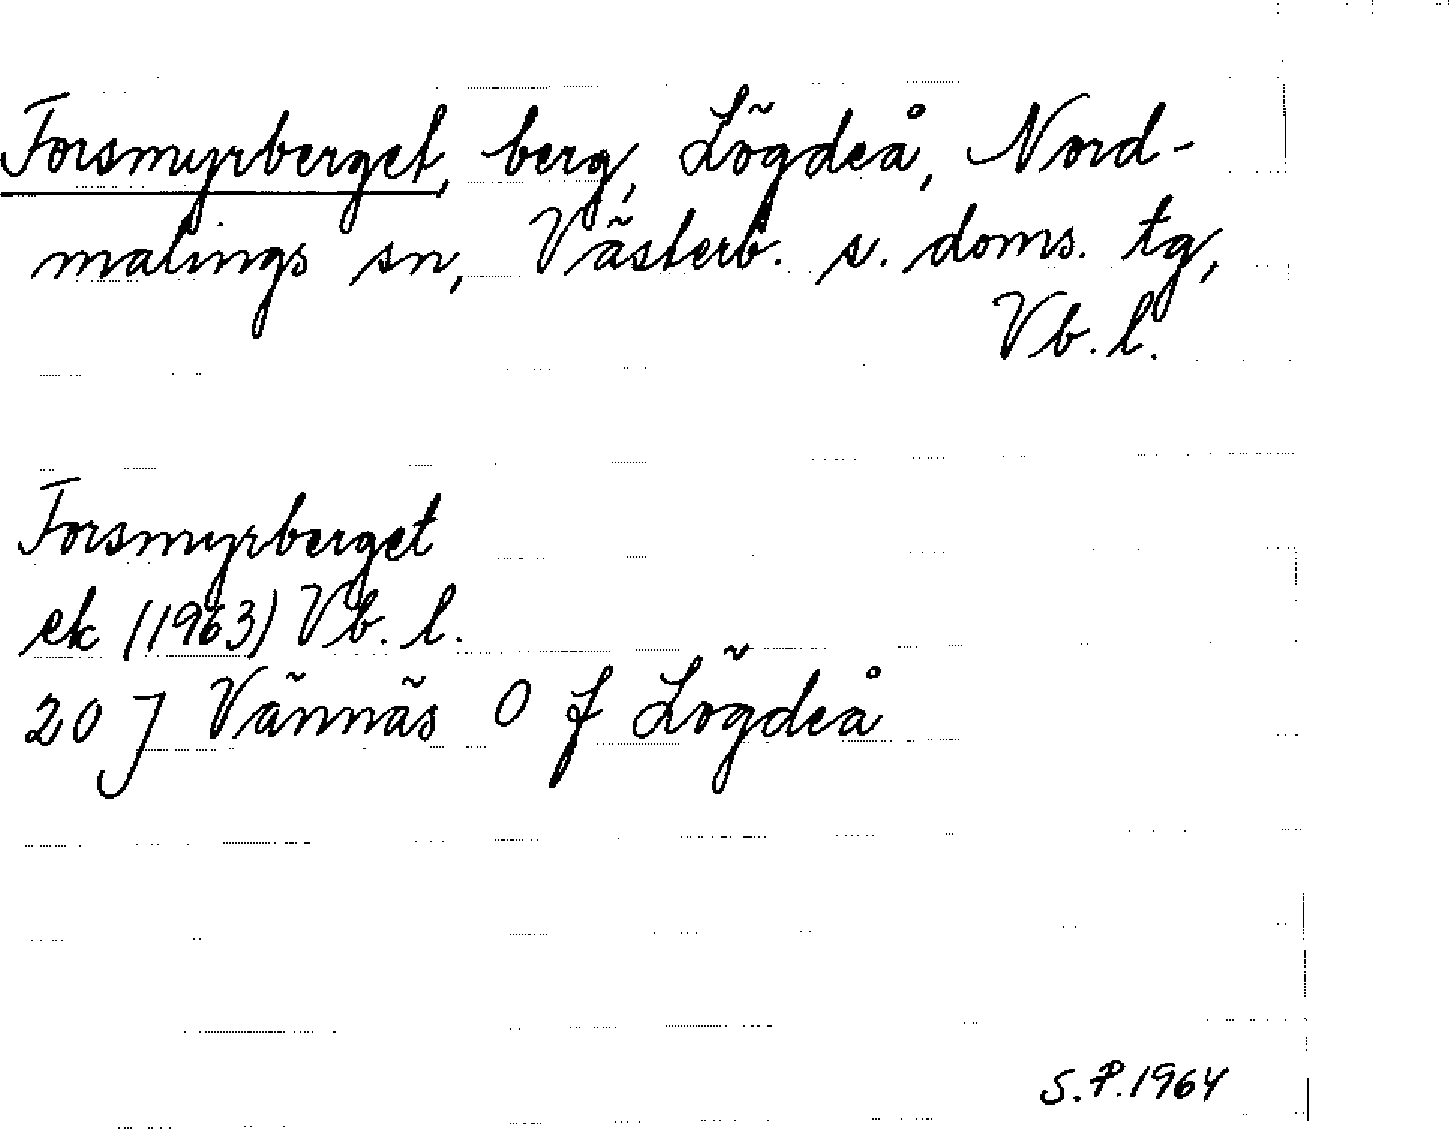 Forsmyrberget, berg, Lögdeå, Nord-
malings sn, Västerb. s. doms. tg,
Vb. l.
Forsmyrberget
ek (1963) Vb. l.
20 J Vännäs O f Lögdeå
S.P. 1964